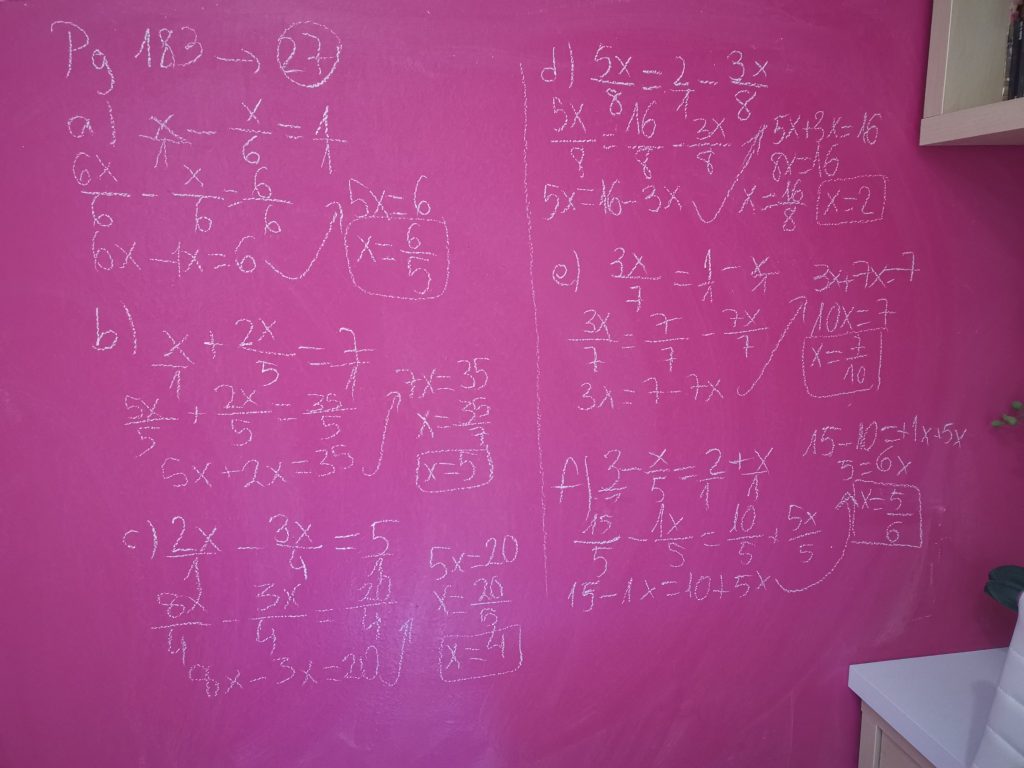 Pg 183 → 27
a) x/1 - x/6 = 1/1
6x/6 - x/6 = 6/6
6x - 1x = 6
5x = 6
x = 6/5
b) x/1 + 2x/5 = 7/1
5x/5 + 2x/5 = 35/5
5x + 2x = 35
7x = 35
x = 35/7
x = 5
c) 2x/1 - 3x/4 = 5/1
8x/4 - 3x/4 = 20/4
8x - 3x = 20
5x = 20
x = 20/5
x = 4
d) 5x/8 = 2/1 - 3x/8
5x/8 = 16/8 - 3x/8
5x = 16 - 3x
5x + 3x = 16
8x = 16
x = 16/8
x = 2
e) 3x/7 = 1/1 - x/1
3x/7 = 7/7 - 7x/7
3x = 7 - 7x
3x + 7x = 7
10x = 7
x = 7/10
f) 3/1 - x/5 = 2/1 + x/1
15/5 - 1x/5 = 10/5 + 5x/5
15 - 1x = 10 + 5x
15 - 10 = +1x + 5x
5 = 6x
x = 5/6